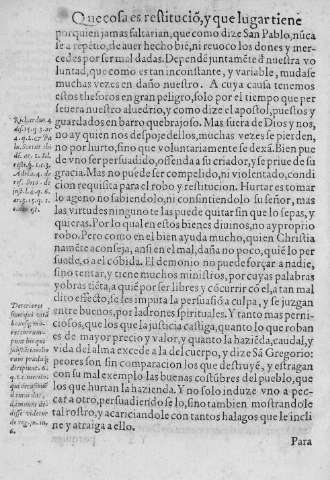 Que cosa es restitució, y que lugar tiene
por quien jamas faltarian, que como dize San Pablo, núca
se arepétio, de auer hecho bié, ni reuoco los dones y mer-
cedes por ser mal dadas. Depende juntaméte d'nuestra vo
luntad, que como es tan inconstante, y variable, mudase
muchas vezes en daño nuestro. A cuya causa tenemos
estos thesoros en gran peligro, solo por el tiempo que per
seuera nuestro aluedrio, y como dize el aposto, puestos y
guardados en barro quebrajoso. Mas fuera de Dios y nos
no ay quien nos despoje dellos, muchas vezes se pierden,
no por hurto, sino que voluntariamente se dexá. Bien pue
de vno ser persuadido, offenda a su criador, y se priue de su
gracia. Mas no puede ser compelido, ni violentado, condi
cion requisita para el robo y restitucion. Hurtar es tomar
lo ageno no sabiendolo, ni consintiendolo su señor, mas
las virtudes ninguno te las puede quitar sin que lo sepas, y
quieras. Por lo qual en estos bienes diuinos, no ay proprio
robo. Pero como en el bien ayuda mucho, quien Christia
naméte aconseja, ansi en el mal, daña no poco, quié lo per
suade, o a el cóbida. El demonio no puede forçar a nadie,
sino tentar, y tiene muchos ministros, por cuyas palabras
y obras tiéta, a quié por ser libres y cócurrir có el, a tan mal
dito effecto, se les imputa la persuasió a culpa, y se juzgan
entre buenos, por ladrones spirituales. Y tanto mas perni-
ciosos, que los que la justicia castiga, quanto lo que roban
es de mayor precio y valor, y quanto la haziéda, caudal, y
vida del alma excede a la del cuerpo, y dize Sã Gregorio:
peores son sin comparacion los que destruyé, y estragan
con su mal exemplo las buenas costúbres del pueblo, que
los que hurtan la hazienda. Y no solo induze vno a pec-
car a otro, persuadiendo se lo, sino tambien mostrandole
tal rostro, y acariciandole con tantos halagos que le incli
ne y atraiga a ello.
Para